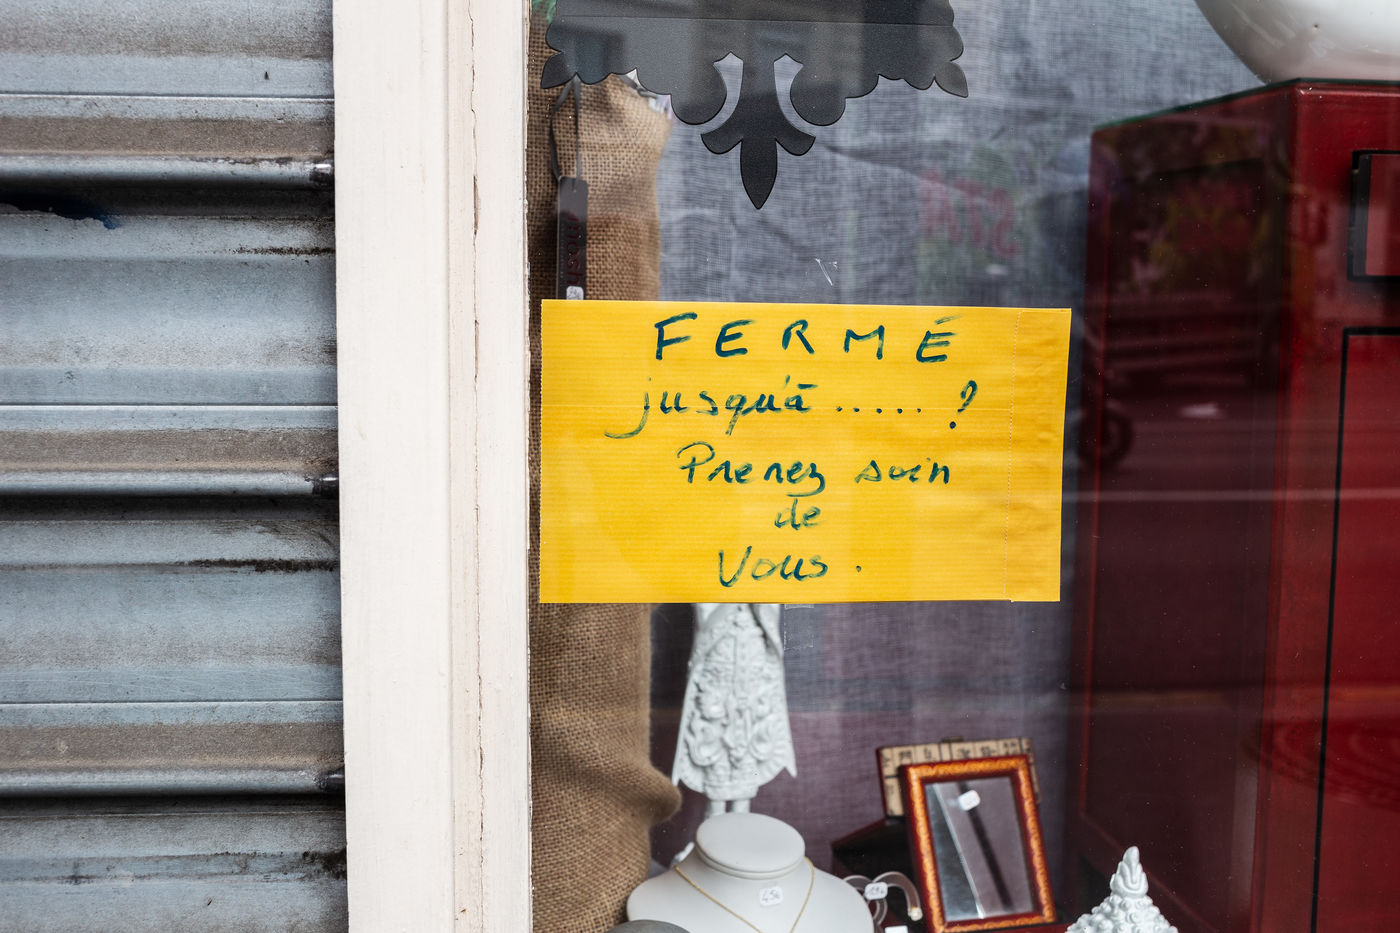 FERMÉ
jusqu'à ..... ?
Prenez soin
de
Vous.
45€